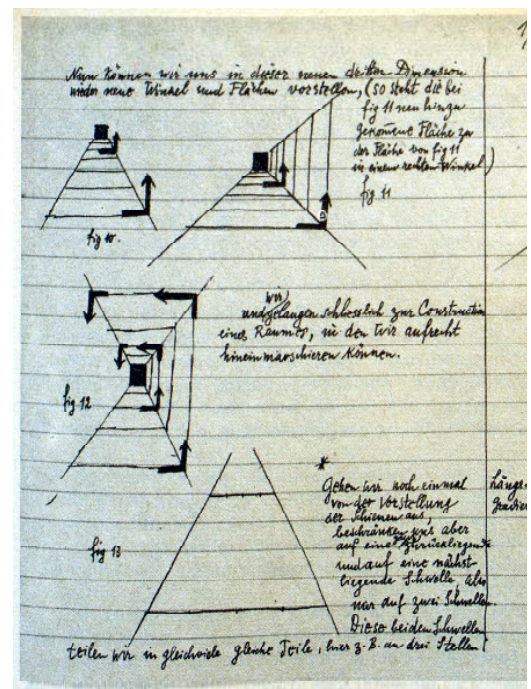 Nun können wir uns in dieser neuen dritten Dimension
wieder neue Winkel und Flächen vorstellen, (so steht die bei
fig 11 neu hinzu
gekommene Fläche zu
der Fläche von fig 11
in einem rechten Winkel)
fig 11
fig 10.
wir
und gelangen schliesslich zur Construction
eines Raumes, in den wir aufrecht
hineinmarschieren können.
fig 12
*
Gehen wir noch einmal
von der Vorstellung
der Schienen aus,
beschränken uns aber
auf eine zurückliegende
und auf eine nächst-
liegende Schwelle, also
nur auf zwei Schwellen.
Diese beiden Schwellen
fig 13
teilen wir in gleichviele gleiche Teile, hier z. B. an drei Stellen